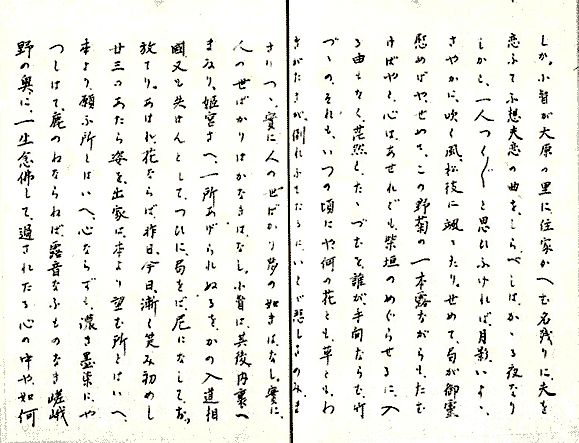 しか。小督が大原の里に住家かへむ名残りに夫を
恋ふてふ想夫恋の曲を、しらべしはかゝる夜なり
しかと、一人つく／″＼と思ひふければ、月影いよ／＼
さやかに、吹く風松枝に颯々たり。せめて、局が御霊
慰めばや、せめて、この野菊の一本露ながらも、たむ
けばやと、心はあせれども、柴垣のめぐらせるに、入
る由もなく、茫然と、たゝづむを誰が手向ならむ、竹
づゝの、それも、いつの頃にや何の花とも、草とも、わ
きがたきが、倒れふしたるに、いとゞ悲しさのみま
さりつゝ、實に人の世ばかり夢の如きはなし、實に、
人の世ばかりはかなきはなし。小督は其後内裏へ
まゐり、姫宮さへ、一所あげられぬるを、かの入道相
國又も失はんとして、つひに、局をば尼になして、お
放てり。あはれ、花ならば昨日、今日、漸く笑み初めし
廿三のあたら姿を、出家は、本より望む所とはいへ、
本より、願ふ所とはいへ、心ならずも、濃き墨染にや
つしはて、鹿のねならねば、露音なふものなき嵯峨
野の奥に、一生念佛して、過されたる心の中や如何